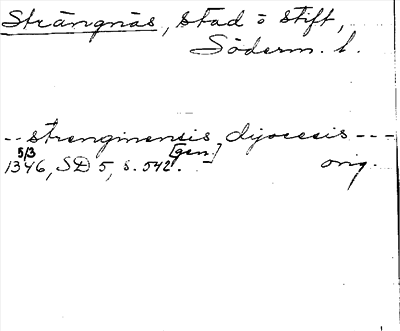 Strängnäs, stad o stift,
Söderm. l.
-- strenginensis dyocesis ---
[gen.]
5/3
1346, SD 5, s. 542. orig.